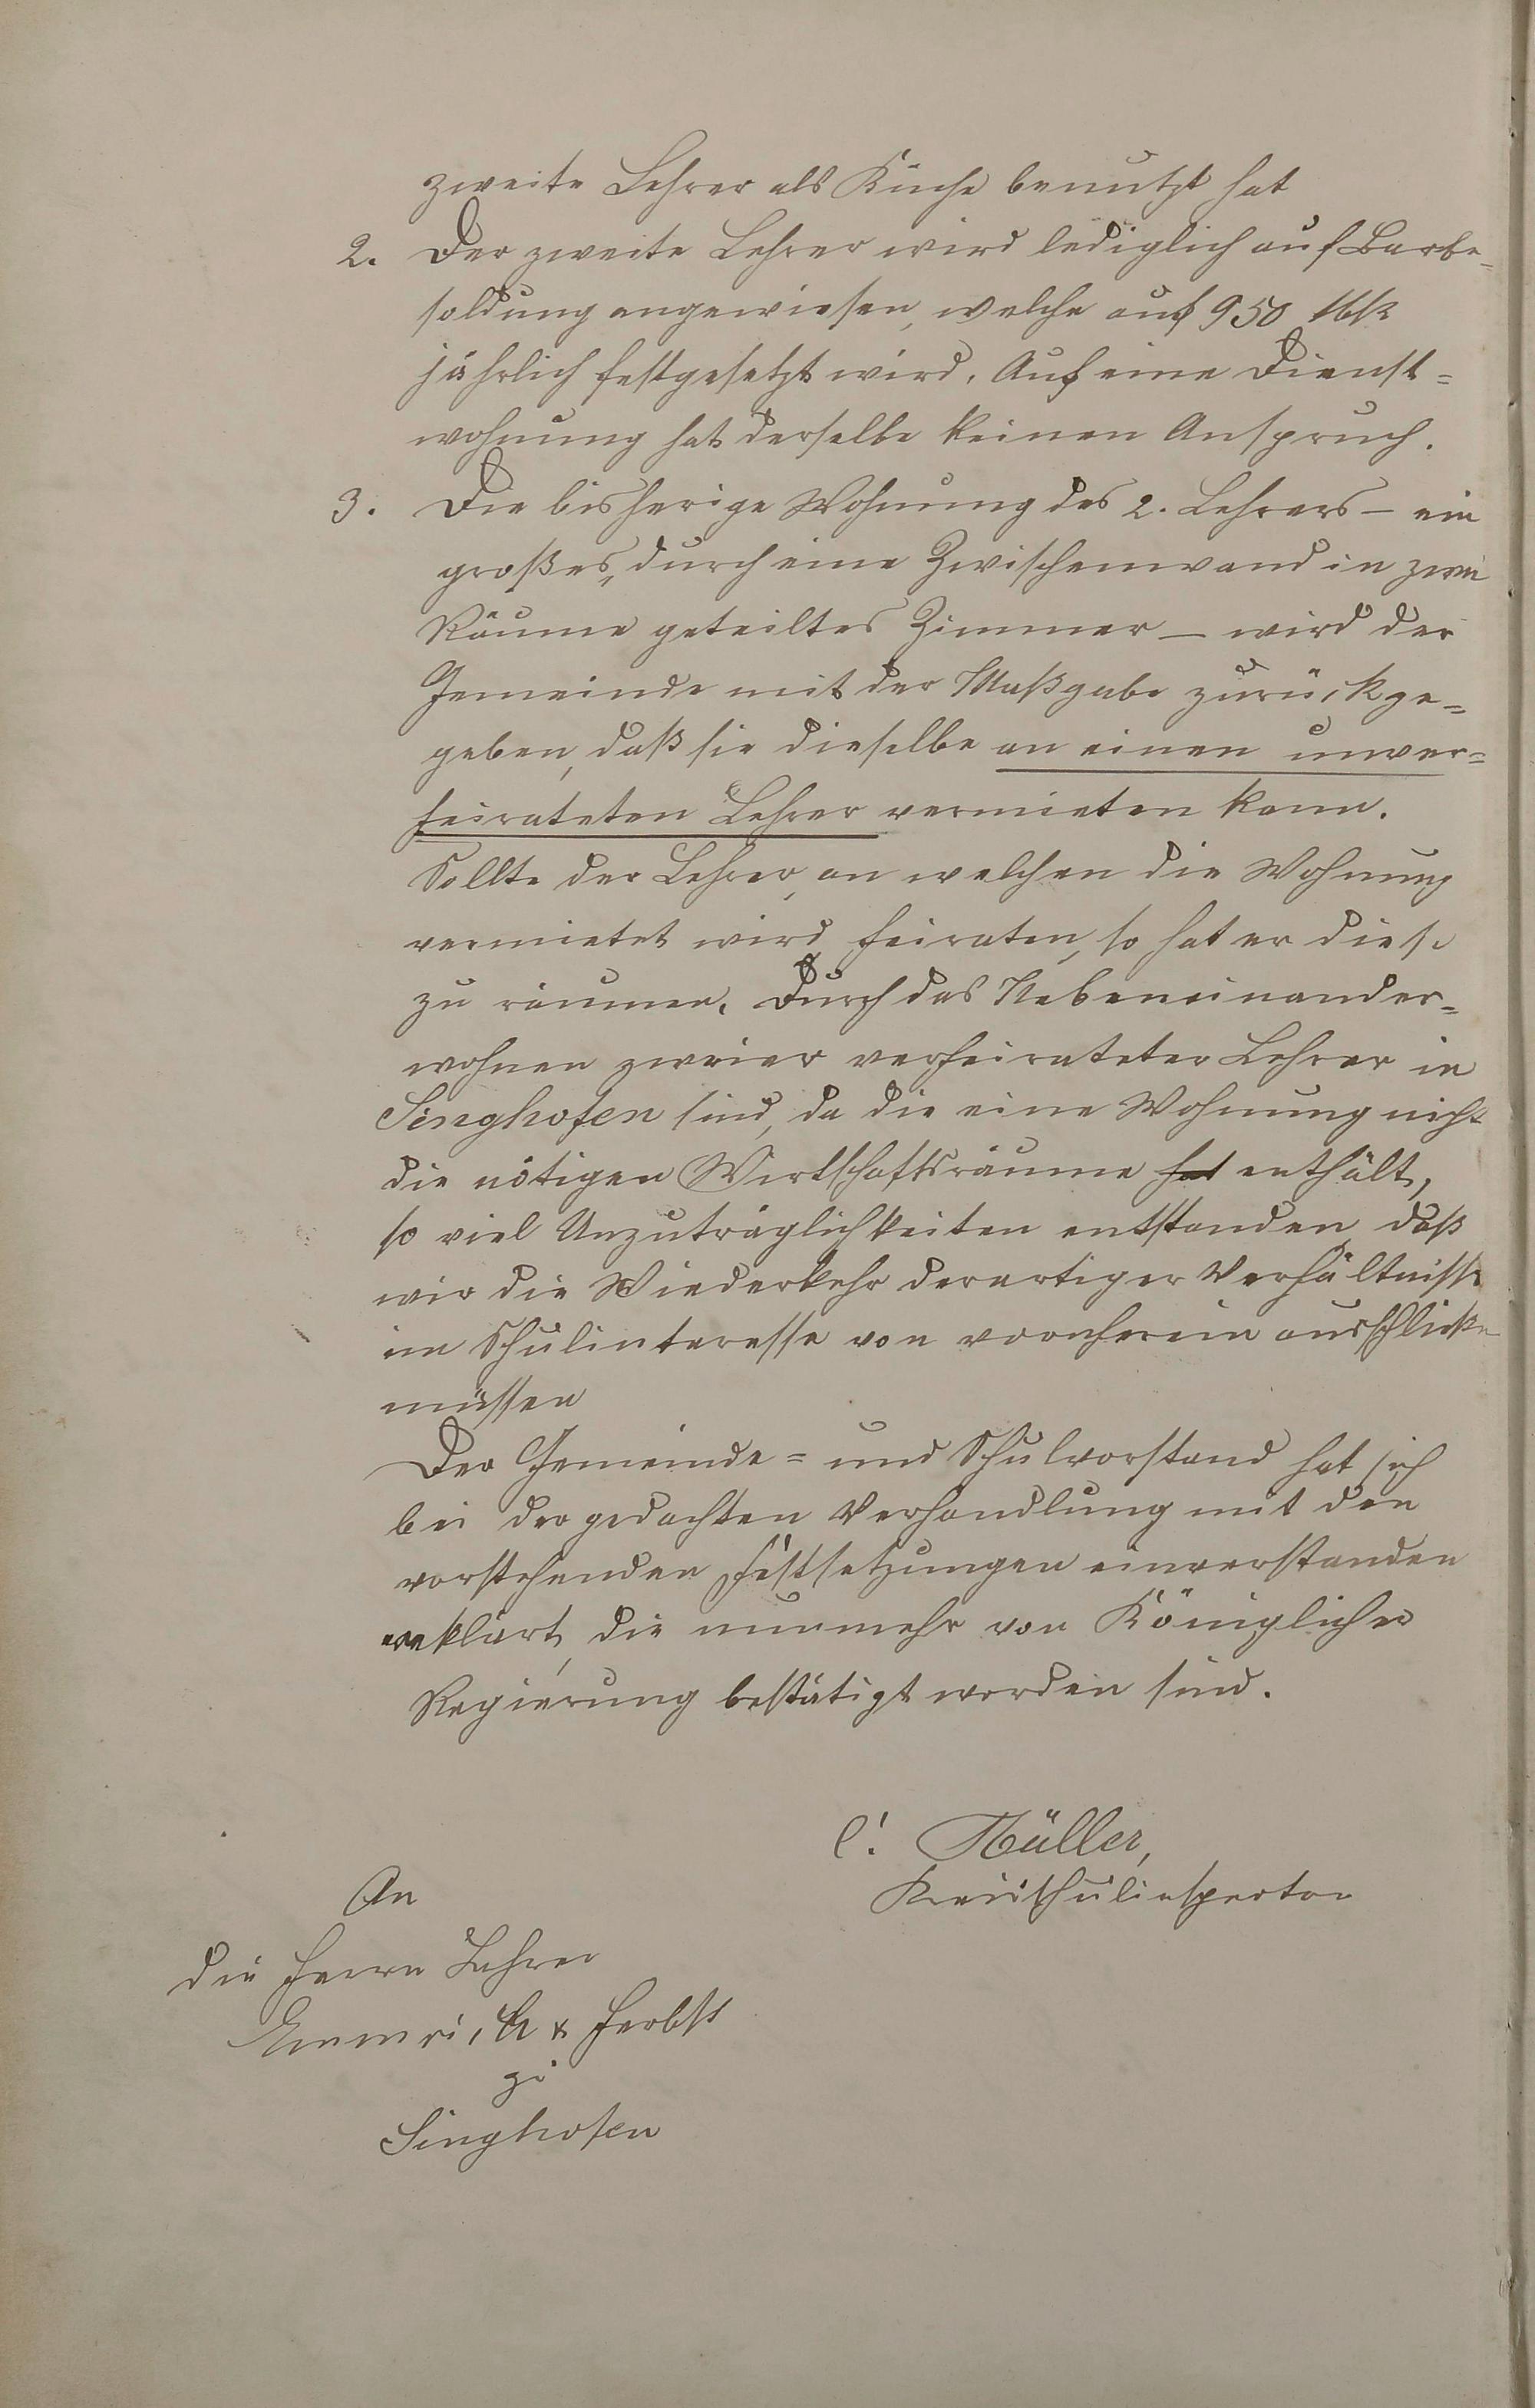 zweite Lehrer als Küche benutzt hat
2. Der zweite Lehrer wird lediglich auf Barbe=
soldung angewiesen, welche auf 950 Mk
jährlich festgesetzt wird. Auf eine Dienst=
wohnung hat derselbe keinen Anspruch.
3. Die bisherige Wohnung des 2. Lehrers – ein
großes, durch eine Zwischenwand in zwei
Räume geteiltes Zimmer – wird der
Gemeinde mit der Maßgabe zurückge=
geben, daß sie dieselbe an einen unver=
heirateten Lehrer vermieten kann.
Sollte der Lehrer, an welchen die Wohnung
vermietet wird, heiraten, so hat er diese
zu räumen. Durch das Nebeneinander=
wohnen zweier verheirateter Lehrer in
Singhofen sind, da die eine Wohnung nicht
die nötigen Wirtschaftsräume hat enthält,
so viel Unzuträglichkeiten entstanden, daß
wir die Wiederkehr derartiger Verhältnisse
im Schulinteresse von vornherein ausschließen
müssen
Der Gemeinde= und Schulvorstand hat sich
bei der gedachten Verhandlung mit den
vorstehenden Festsetzungen einverstanden
erklärt, die nunmehr von Königlicher
Regierung bestätigt worden sind.
Müller,
Kreisschulinspector
An
die Herrn Lehrer
Emmerich & Herbst
zu
Singhofen